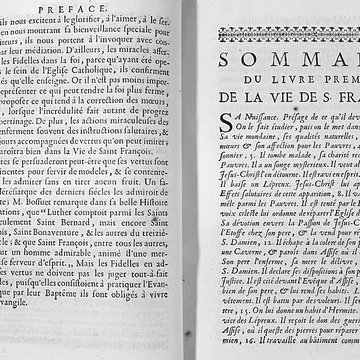 PREFACE.
nous excitent à le glorifier, à l'aimer, à le ser-
en nous montrant sa bienveillance speciale pour
ieurs, ils nous portent à l'invoquer avec con-
par leur médiation. D'ailleurs, les miracles affer-
les Fidelles dans la foi, parce qu'ayant été ope-
s le sein de l'Eglise Catholique, ils confirment
és qu'elle enseigne. Or il n'est pas moins impor-
représenter ce qui peut rendre la foi plus ferme,
proposer ce qui tend à la correction des mœurs,
, lorsque l'incrédulité fait autant de progrez
bertinage. De plus, les actions miraculeuses des
enferment souvent des instructions salutaires, &
ujours accompagnées de vertus qu'on peut imiter:
aroîtra bien dans la Vie de Saint François.
es se persuaderont peut-être que ses vertus sont
inentes pour servir de modeles, & se contente-
les admirer sans en tirer aucun fruit. Un fa-
ferésiarque des derniers siecles les admiroit de
te: M. Bossuet remarque dans sa belle Histoire
utions, que " Luther comptoit parmi les Saints
eulement Saint Bernard, mais encore Saint
ois, Saint Bonaventure, & les autres du treizié-
cle; & que Saint François, entre tous les autres,
ut un homme admirable, animé d'une mer-
se ferveur d'esprit. „ Mais les Fidelles en ad-
ses vertus ne doivent pas les juger tout-à-fait
bles, puisqu'elles consistoient à pratiquer l'Evan-
que par leur Baptême ils sont obligés à vivre
vangile.
SOMMA
DU LIVRE PREM
DE LA VIE DE S. FRA
SA Naissance. Présage de ce qu'il dev
On le fait étudier, puis on le met dans
Sa vie mondaine, ses qualités naturelles,
mœurs & son affection pour les Pauvres,
sonnier, 5. Il tombe malade, sa charité re
Pauvres. Il a un songe mystérieux. Il veut
Jesus-Christ l'en détourne. Il fait envie spi
Il baise un Lépreux. Jesus-Christ lui ap
Effets salutaires de cette apparition, 8. Il
mêlé parmi les Pauvres. Il est tenté par le
voix céleste lui ordonne de réparer l'Eglise
Sa dévotion envers la Passion de Jesus-C
l'Etoffe chez son pere, & la vend à
S. Damien, 12. Il échape à la colere de son
une Caverne, & paroît dans Assise où il
Son pere l'enferme, sa mere le délivre,
S. Damien. Il declare ses dispositions à son
Justice. Il est cité devant l'Evêque d'Assise,
biens de son pere, & lui rend ses habits. L
vêtement. Il est battu par des voleurs. Il se
tere, 15. On lui donne un habit d'Hermite.
vice des Lépreux. Il reçoit de Dieu la grace
Assise, où il quête des pierres pour réparer
mien, 16. Il travaille au bâtiment comm